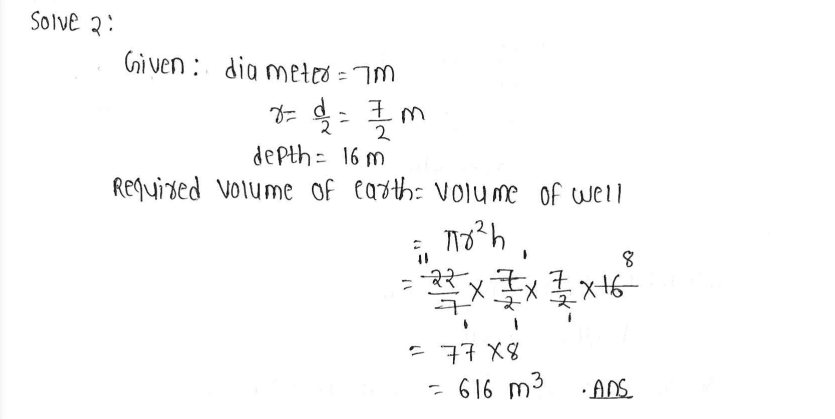 Solve 2:
Given: diameter = 7m
r = d/2 = 7/2 m
depth = 16 m
Required volume of earth = volume of well
= πr²h
= 22/7 × 7/2 × 7/2 × 16 11 1 1 1 1 8
= 77 × 8
= 616 m³ . Ans